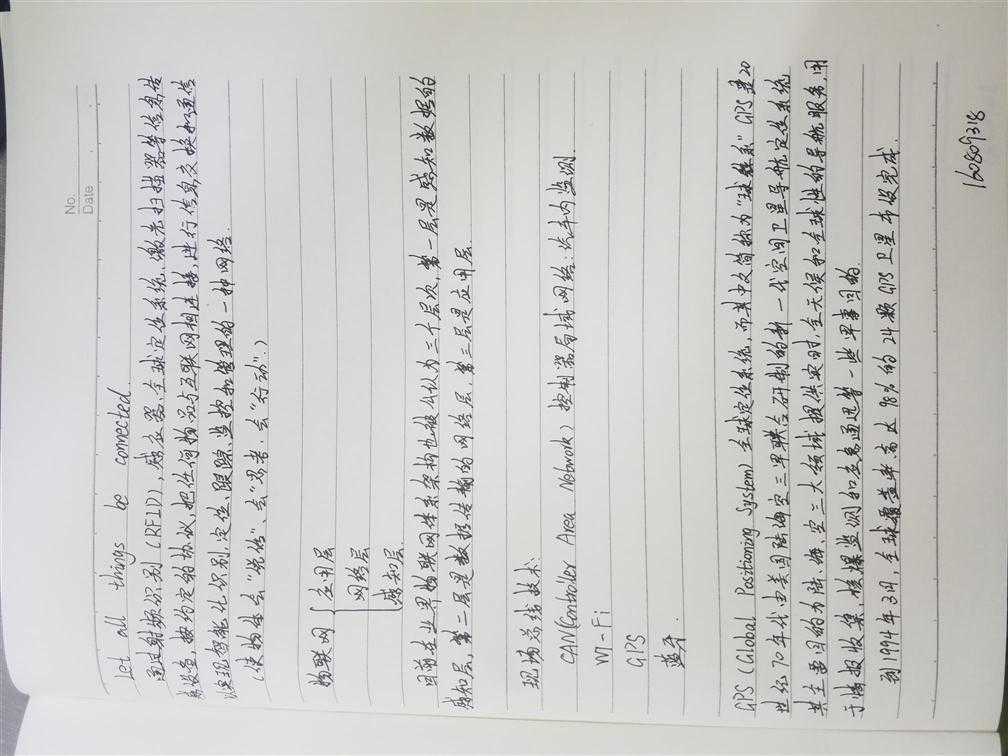 No.
Date
Let all things be connected.
通过射频识别(RFID),感应器,全球定位系统,激光扫描器等信息传
感设备,按约定的协议,把任何物品与互联网相连接,进行信息交换和通信
实现智能化识别、定位、跟踪、监控和管理的一种网络.
(使物体会“说话”、会“思考”、会“行动”.)
物联网 { 应用层
网络层
感知层.
目前在业界物联网体系架构也被公认为三个层次,第一层是感知数据的
感知层,第二层是数据传输的网络层,第三层是应用层.
现场总线技术:
CAN(Controller Area Network)控制器局域网络:汽车内监测.
WI-Fi
GPS
蓝牙.
GPS(Global Positioning System)全球定位系统,而其中文简称为“球
系”GPS是20
世纪70年代由美国陆海空三军联合研制的新一代空间卫星导航定位系统
其主要目的为陆、海、空三大领域提供实时、全天候和全球性的导航服务,用
于情报收集,核爆监测和应急通讯等一些军事目的.
到1994年3月,全球覆盖率高达98%的24颗GPS卫星布设完成.
160809318